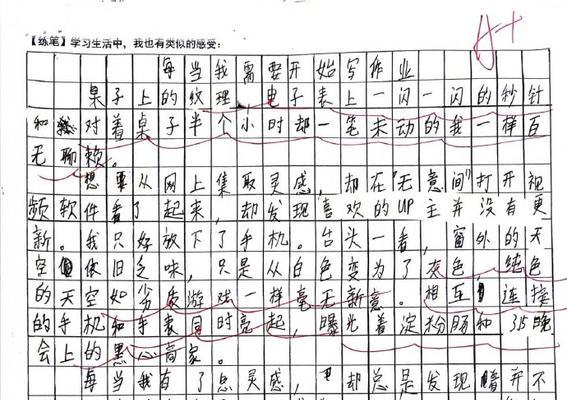 【练笔】学习生活中，我也有类似的感受：
A+
每当我需要开始写作业
桌子上的纹理、电子表上一闪一闪的秒针
和对着桌子半个小时却一笔未动的我一样百
无聊赖。
想要从网上集取灵感，却在"无意间"打开视
频软件看了起来，却发现喜欢的UP主并没有更
新。我只好放下了手机。台头一看，窗外的天
空依旧乏味，只是从白色变为了灰色 纯色
的天空如劣质游戏一样毫无新意。相互连接
的手机和手表同时亮起，曝光着淀粉肠和315晚
会上的黑心商家。
每当我有了点灵感，却总是发现并不